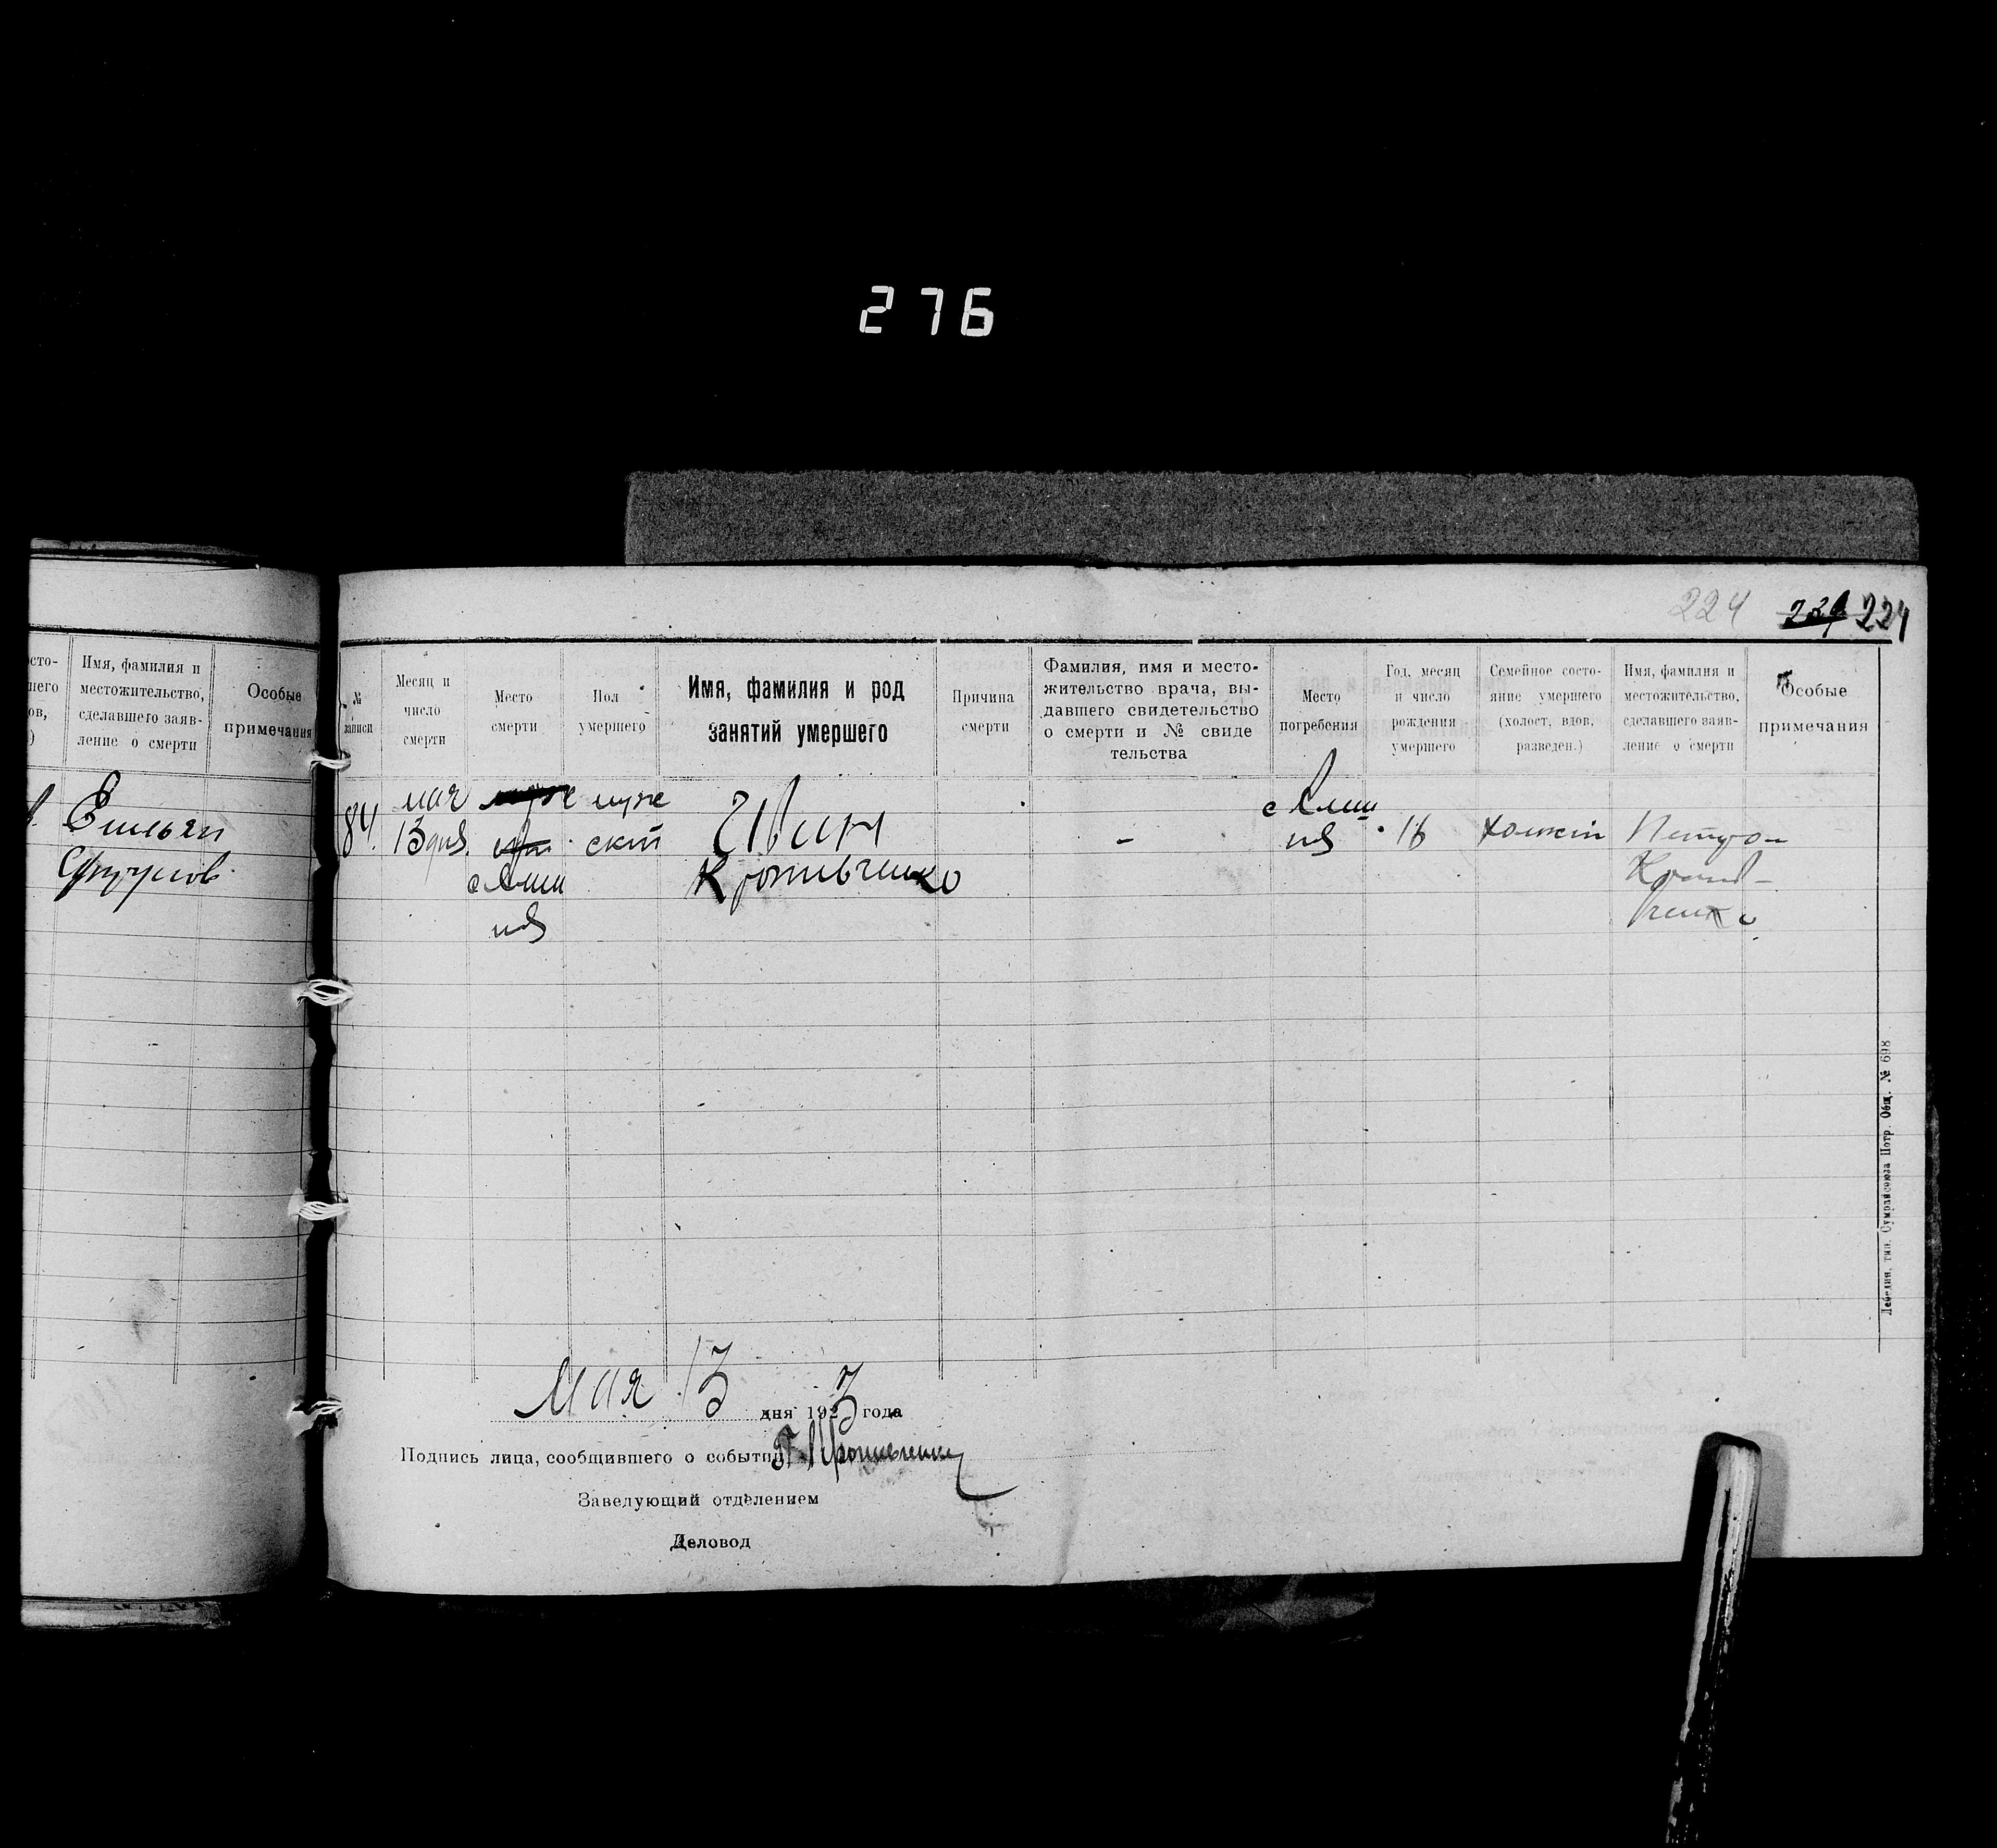 276
224 224
Имя, фамилия и
местожительство,
сделавшего заяв-
ление о смерти
Особые
примечания
Емельян
№
записи
Месяц и
число
смерти
Место
смерти
Пол
умершего
Имя, фамилия и род
занятий умершего
Причина
смерти
Фамилия, имя и место-
жительство врача, вы-
давшего свидетельство
о смерти и № свиде
тельства
Место
погребения
Год, месяц
и число
рождения
умершего
Семейное состо-
яние умершего
(холост, вдов,
разведен.)
Имя, фамилия и
местожительство,
сделавшего заяв-
ление о смерти
Особые
примечания
84.
мая
13 дня.
муж
ской
Иван
-
16
холост
мая 13 дня 1923 года
Подпись лица, сообщившего о событии
Заведующий отделением
Деловод
Лебедин, тип. Сумрайсоюза Потр. Общ. № 698